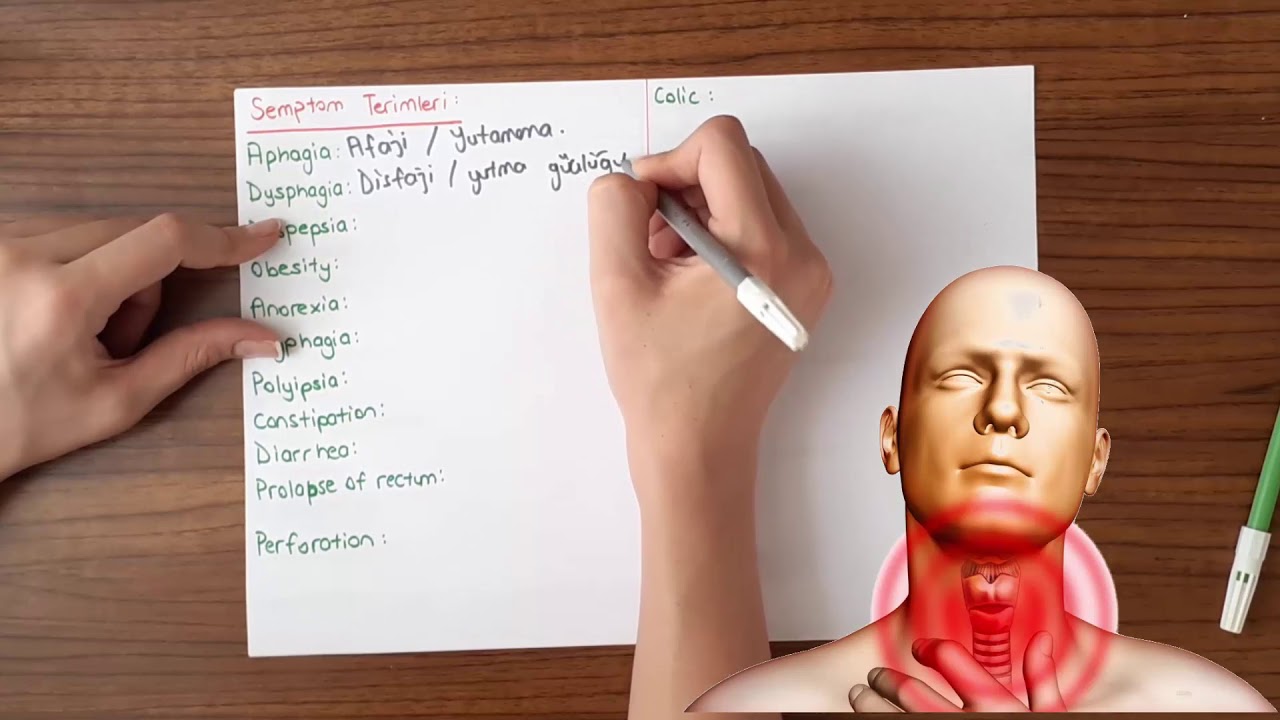 Semptom Terimleri:
Aphagia: Afaji / Yutamama.
Dysphagia: Disfaji / yutma güçlüğü
pepsia:
Obesity:
Anorexia:
phagia:
Polyipsia:
Constipation:
Diarrhea:
Prolapse of rectum:
Perforation:
Colic: